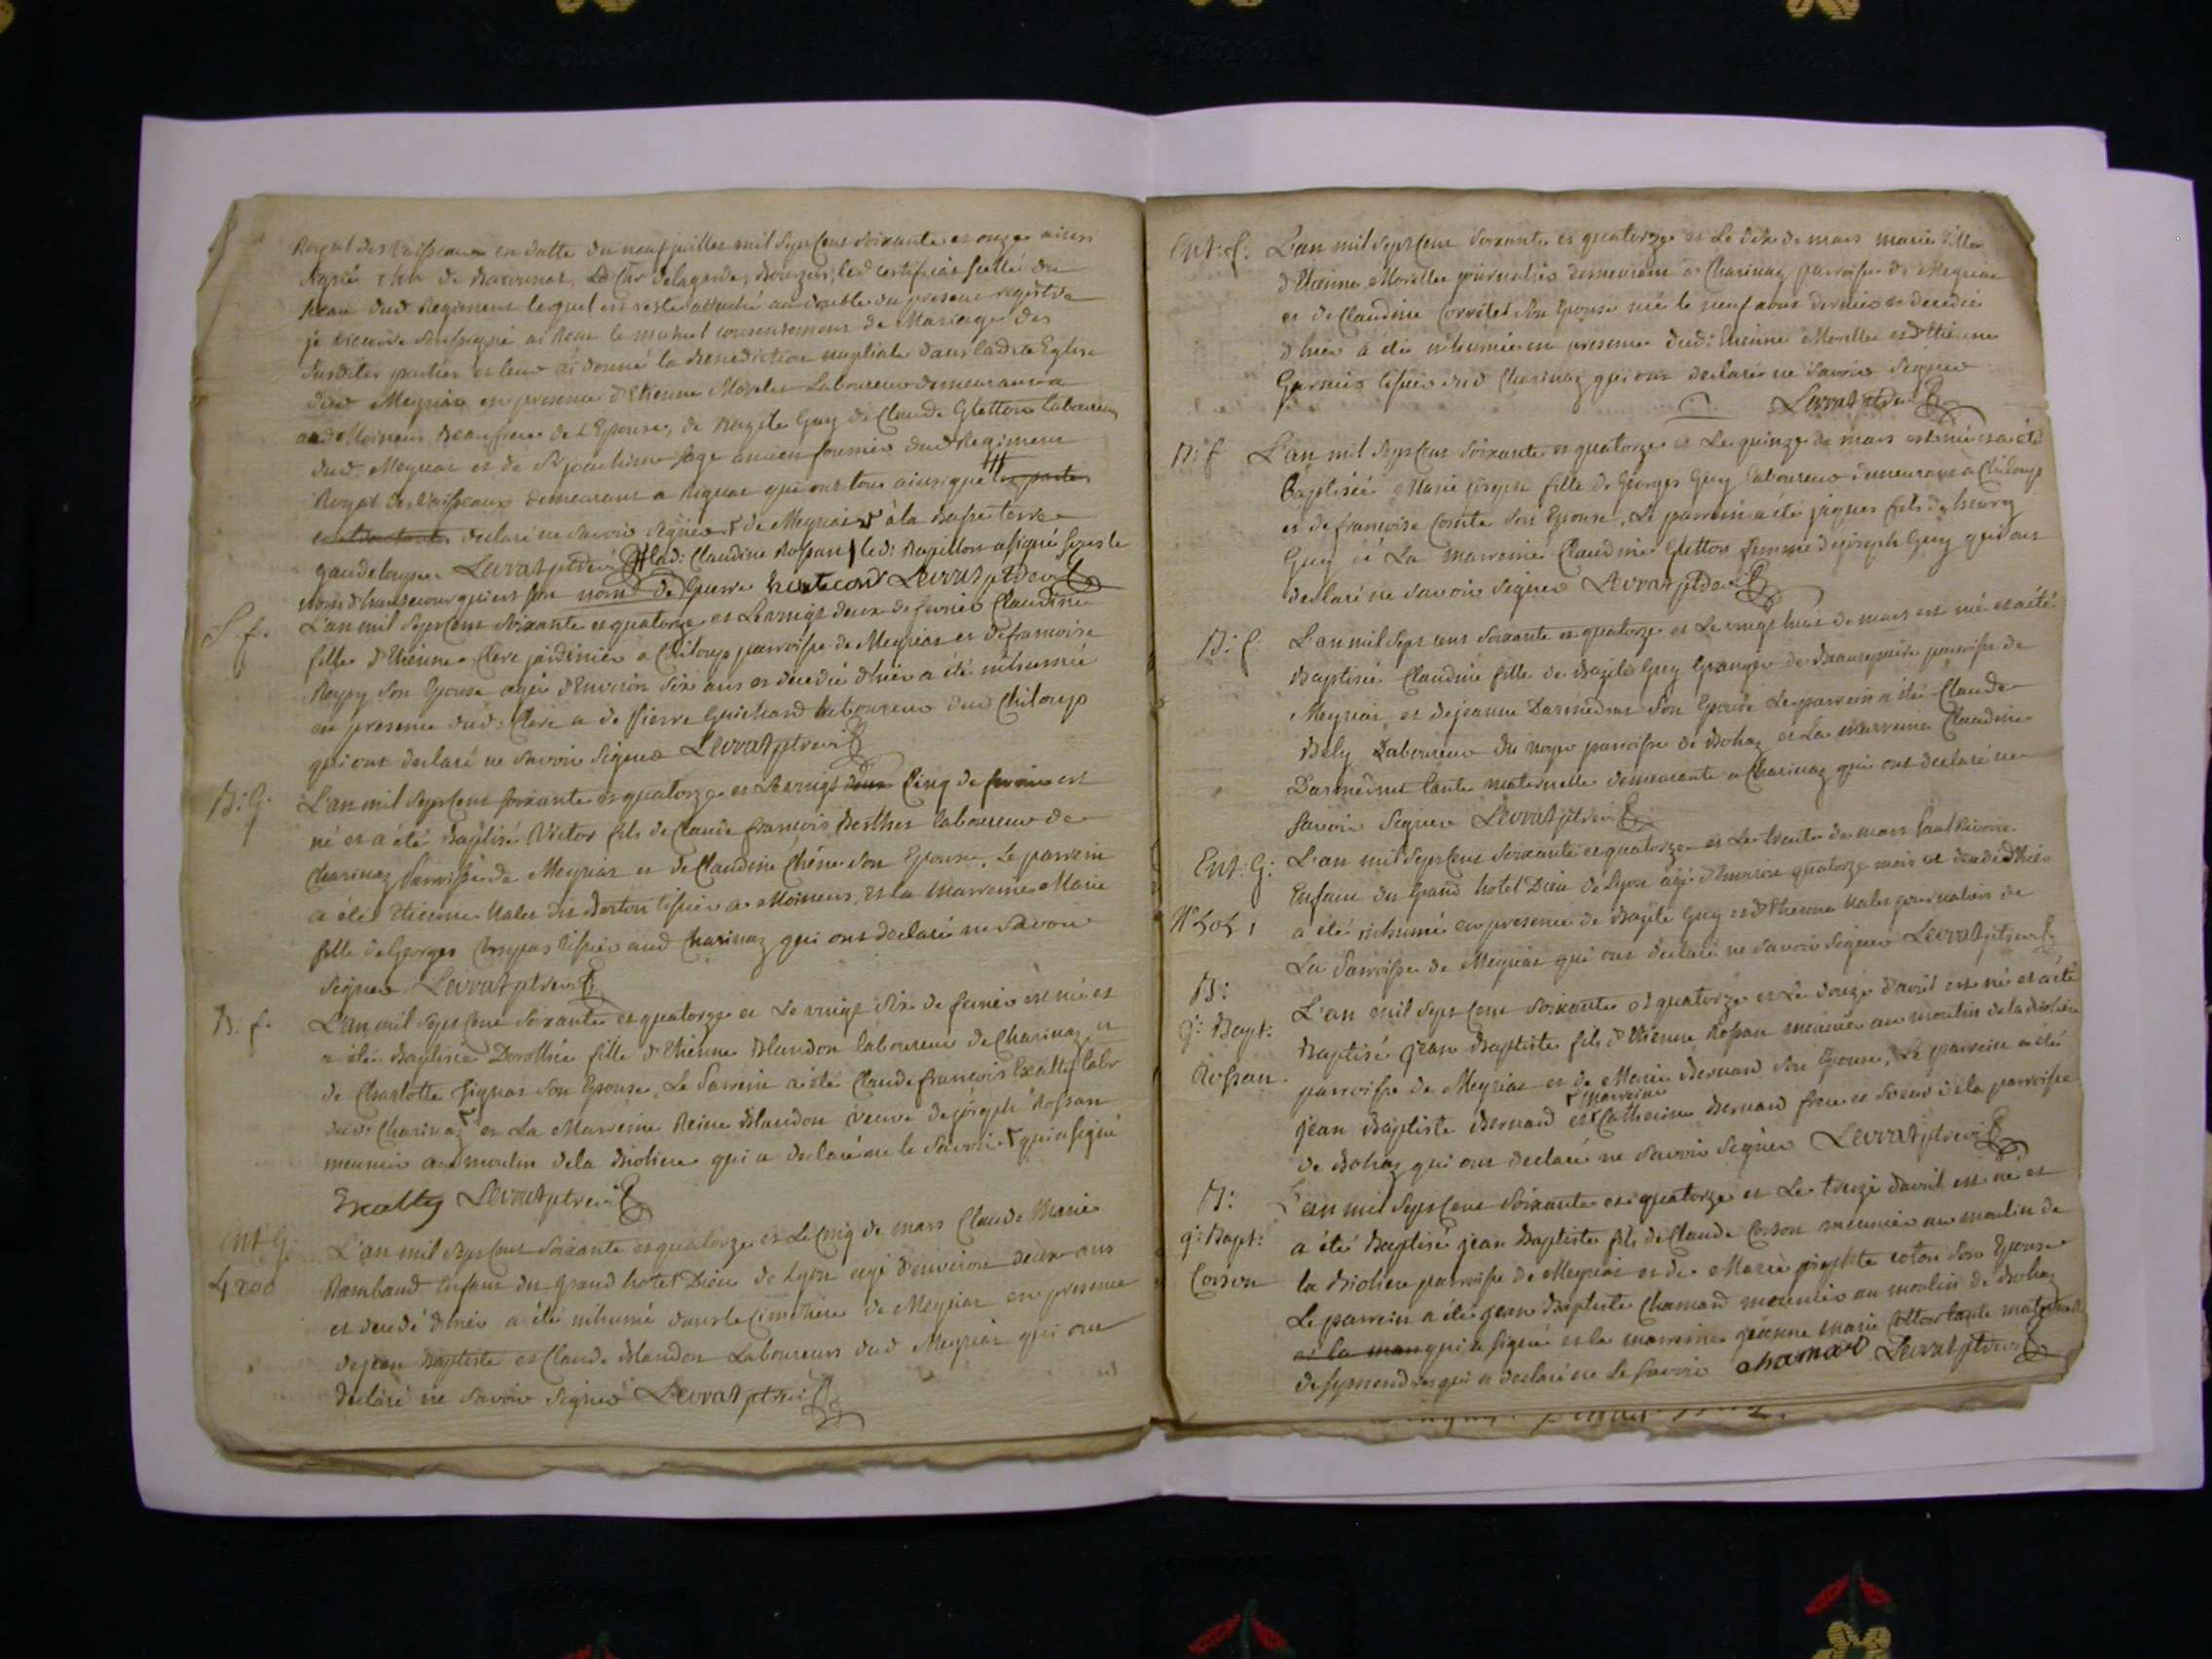 Royal des Vaisseaux en datte du neuf juillet mil Sept Cent Soixante et onze ainsi
Signé de Le Chr delagarde, led certificat Scellé du
Sceau dud Regiment lequel est resté attaché au double du present registre
je vicaire Soussigné ai Recu le mutuel consentement de Mariage des
Susdites parties et leur ai donné la Benediction nuptiale dans ladite Eglise
dud Meyriat en presence d'Etienne Morelet Laboureur demeurant a
Beaufrere de L'Epouse, de Bazile Guy de Claude Gletton laboureur
dud. Meyriat et de Sr joachim ancien fourrier dud Regiment
Royal des Vaisseaux demeurant a qui ont tous ainsi que les parties
contractantes declaré ne Savoir Signer de Meyriat à la Basse terre
gaudeloupe. Levrat ptre vi lad: Claudine Rossan led: a Signé Sous le
nom d'hautecour qui est Son nom de Guerre hautecour Levrat ptre vi
S. f. L'an mil Sept Cent Soixante et quatorze et Le vingt deux de fevrier Claudine
fille d'Etienne Clere jardinier a Chiloup parroisse de Meyriat et de francoise
Son Epouse agée d'Environ Six ans et decedée d'hier a été inhumée
en presence dud: Clere et de Pierre Guichard laboureur dud Chiloup
qui ont declaré ne Savoir Signer Levrat ptre vi
B: G. L'an mil Sept Cent Soixante et quatorze et Le vingt deux Cinq de fevrier est
né et a été Baptisé Victor fils de Claude francois Berthet laboureur de
Charinaz Parroisse de Meyriat et de Claudine Chêne Son Epouse. Le parrein
a été Etienne Nalet dit Berton tissier a Moineins, et la Marreine Marie
fille de Georges tissier aud Charinaz qui ont declaré ne Savoir
Signer Levrat ptre vi
B. f. L'an mil Sept Cent Soixante et quatorze et Le vingt Six de fevrier est née et
a été Baptisée Dorothée fille d'Etienne Blandon laboureur de Charinaz et
de Charlotte Son Epouse, Le Parrein a été Claude francois Exattly labr
dud: Charinaz et La Marreine Reine Blandon veuve de joseph Rossan
meunier au moulin de la Bioliere qui a declaré ne le Savoir qui a signé
Exattly Levrat ptre vi
Ent G. L'an mil Sept Cent Soixante et quatorze et Le Cinq de mars Claude Marie
4200 Rambaud Enfant du Grand hotel Dieu de Lyon agé d'environ deux ans
et decedé d'hier a été inhumé dans le Cimetiere de Meyriat en presence
de jean Baptiste et Claude Blandon Laboureurs dud Meyriat qui ont
declaré ne Savoir Signer Levrat ptre vi
Ent: f: L'an mil Sept Cent Soixante et quatorze et Le dix de mars marie fille
d'Etienne Morellet journalier demeurant a Charinaz parroisse de Meyriat
et de Claudine Corretet Son Epouse née le neuf aout dernier et decedée
d'hier a été inhumée en presence dud: Etienne Morellet et d'Etienne
Garnier tissier dud Charinaz qui ont declaré ne Savoir Signer
Levrat ptre vi
B: f L'an mil Sept Cent Soixante et quatorze et Le quinze de mars est née et a été
Baptisée Marie joseph fille de Georges Guy laboureur demeurant à Chiloup
et de francoise Comte Son Epouse, Le parrein a été jaques fils de
Guy et La marreine Claudine Gletton femme de joseph Guy qui ont
declaré ne Savoir Signer Levrat ptre vi
B: f. L'an mil Sept Cent Soixante et quatorze et Le vingt huit de mars est née et a été
Baptisée Claudine fille de Bazile Guy Granger de parroisse de
Meyriat, et de jeanne Darmedrut Son Epouse Le parrein a été Claude
Bely Laboureur du noyer parroisse de Bohaz et La marreine Claudine
Darmedrut tante maternelle demeurante a Charinaz qui ont declaré ne
Savoir Signer Levrat ptre vi
Ent: G: L'an mil Sept Cent Soixante et quatorze et Le trente de mars Paul Rivoire
Enfant du Grand hotel Dieu de Lyon agé d'Environ quatorze mois et decedé d'hier
a été inhumé en presence de Bazile Guy et d'Etienne Nalet journaliers de
La Parroisse de Meyriat qui ont declaré ne Savoir Signer Levrat ptre vi
B: L'an mil Sept Cent Soixante et quatorze et Le douze d'avril est né et a été
j: Bapt: Baptisé jean Baptiste fils d'Etienne Rossan meunier au moulin de la Bioliere
Rossan parroisse de Meyriat et de Marie Bernard Son Epouse, Le parrein a été
jean Baptiste Bernard et marreine Catherine Bernard frere et Soeur de la parroisse
de Bohaz qui ont declaré ne Savoir Signer Levrat ptre vi
B: L'an mil Sept Cent Soixante et quatorze et Le treize d'avril est né et
j: Bapt: a été Baptisé jean Baptiste fils de Claude Corson meunier au moulin de
Corson la Bioliere parroisse de Meyriat et de Marie josephte coton Son Epouse
Le parrein a été jean Baptiste Chamard meunier au moulin de Bohaz
et la marr qui a signé et la marreine jeanne marie Cotton tante maternelle
de qui a declaré ne Le Savoir chamard Levrat ptre vi